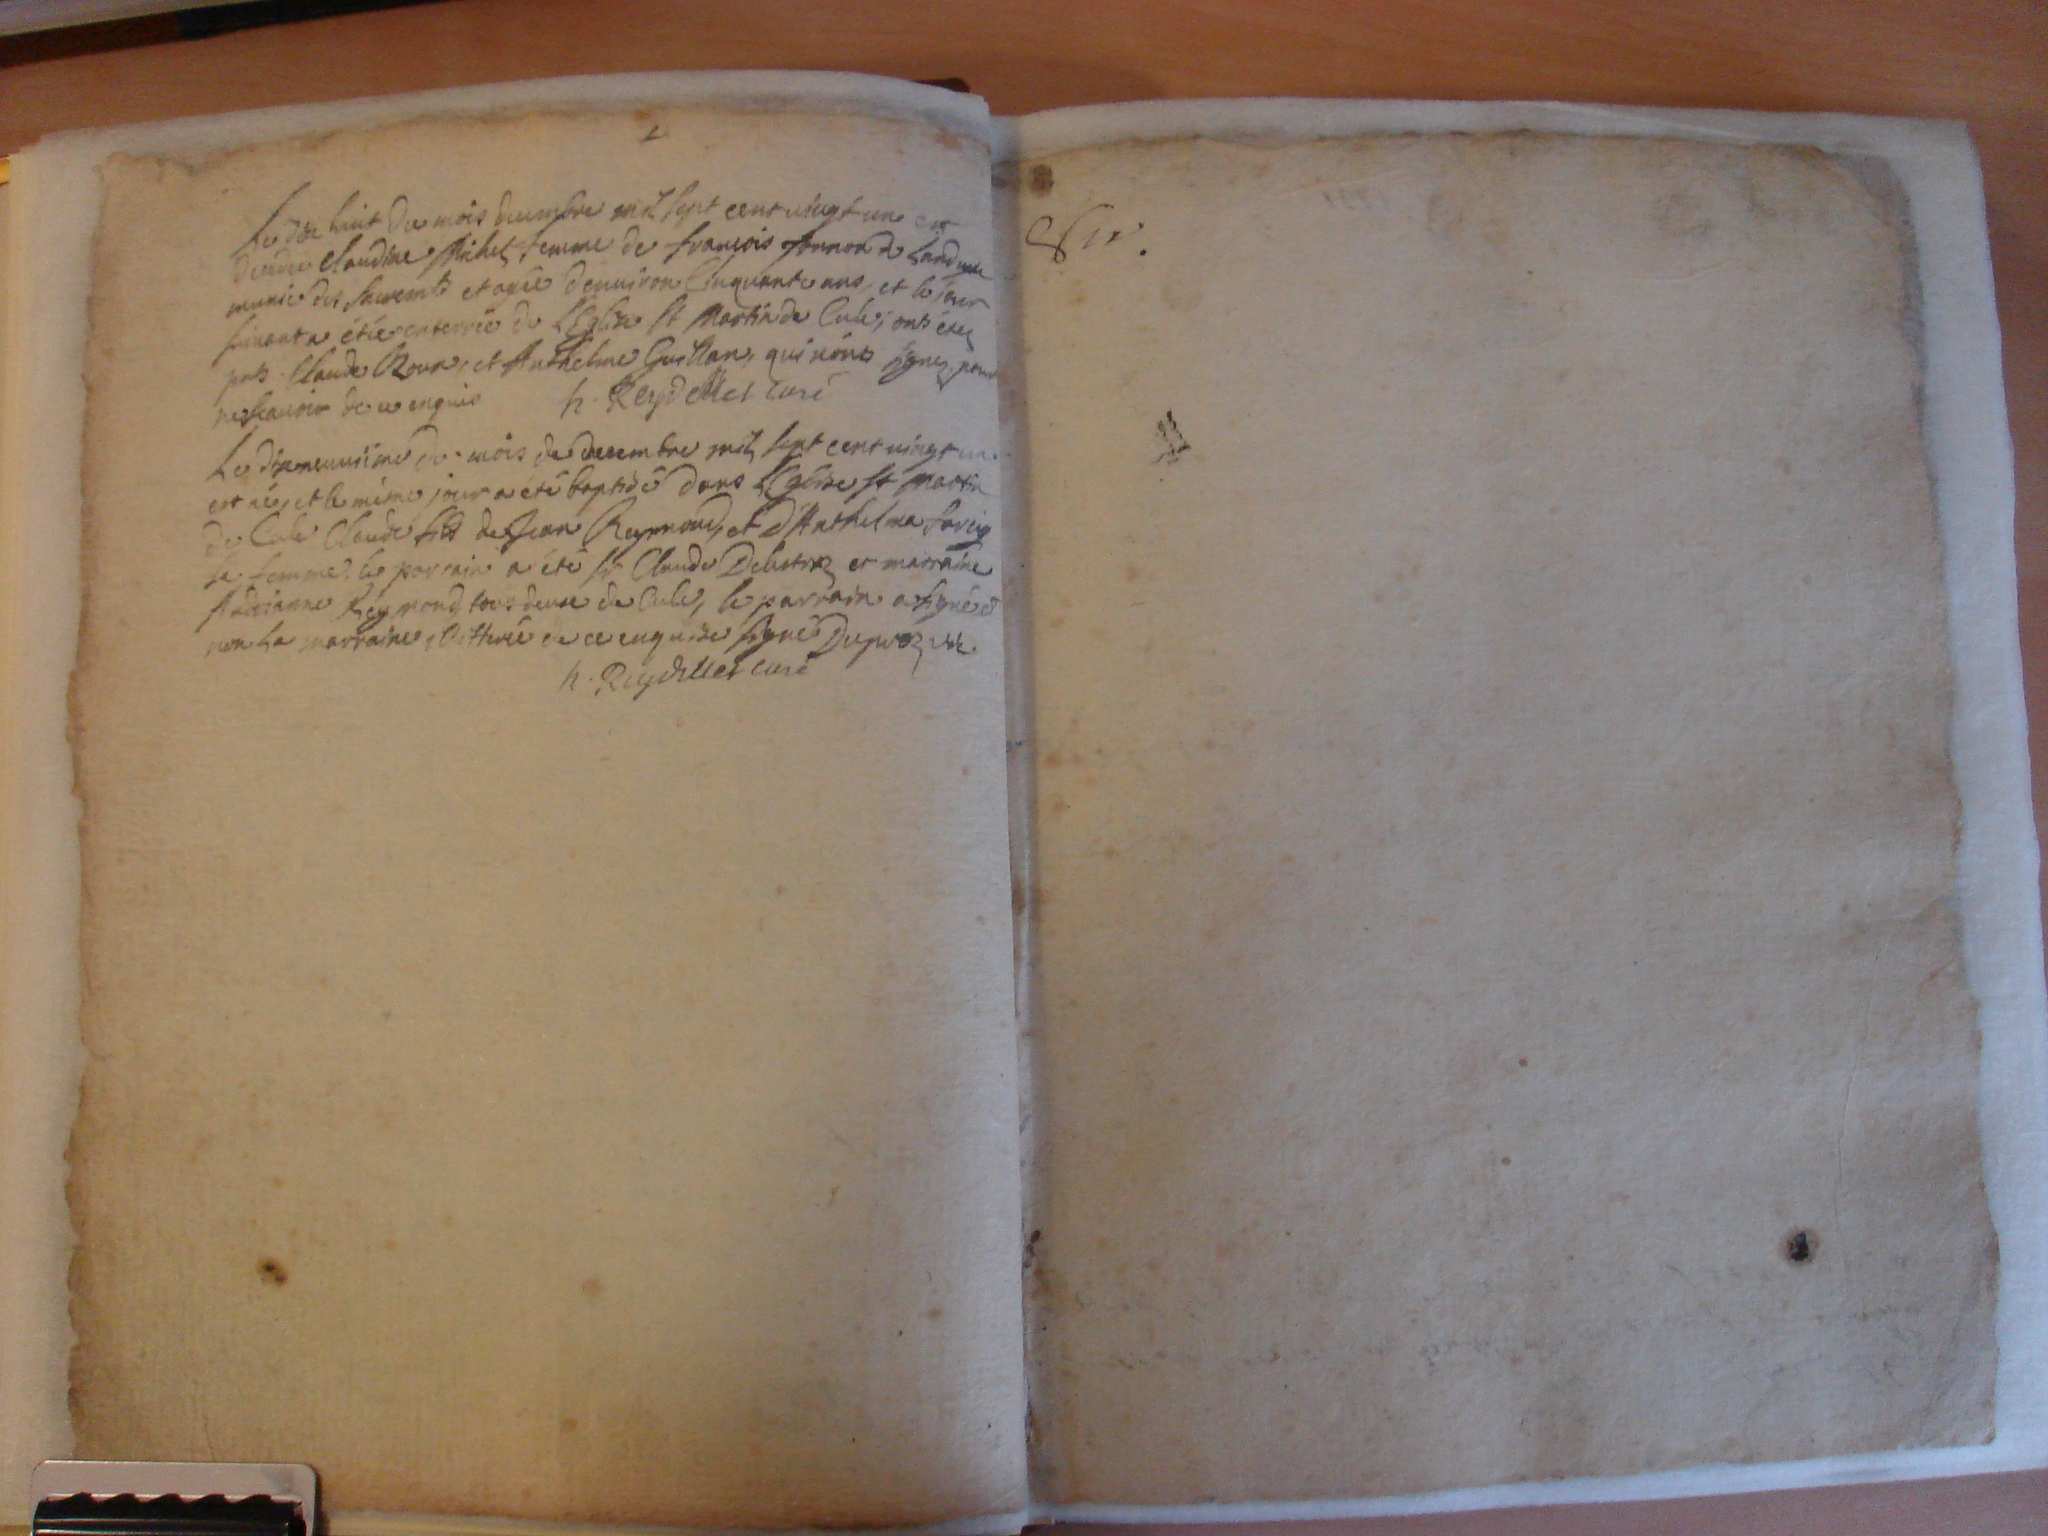 Le dix huit du mois decembre mil sept cent vingt un est
decedée Claudine Michel femme de françois
munie des Sacremts et agée d'environ Cinquante ans, et le jour
suivant a étée enterrée de L'Eglise St Martin de Cule, onts étés
pnts Claude Roux, et Anthelme Guillan, qui n'onts signez pour
ne scavoir de ce enquis h. Reydellet curé
Le dixneuvième du mois de decembre mil sept cent vingt un
est né, et le même jour a été baptisé dans L'Eglise St Martin
de Cule Claude fils de Jean Reymond, et d'Anthelma
sa femme. le parrain a été sr Claude et marraine
Reymond tous deux de Cule, le parrain a signé et
non la marraine illitterée de ce enquise signé
h. Reydellet curé